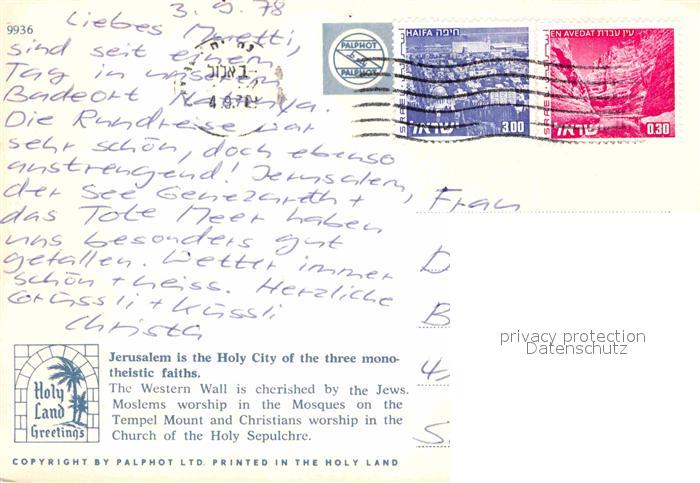 3. 9. 78
9936
Liebes Meretti,
sind seit einem
Tag in unserm
Badeort Natanya.
Die Rundreise war
sehr schön, doch ebenso
anstrengend! Jerusalem,
der See Genezareth +
das Tote Meer haben
uns besonders gut
gefallen. Wetter immer
schön + heiss. Herzliche
Grüssli + Küssli
Christa
PALPHOT
PALPHOT
HAIFA חיפה
ISRAEL
ישראל 3.00
EN AVEDAT עין עבדת
ISRAEL
ישראל 0.30
Frau
D
B
4
S
privacy protection
Datenschutz
Holy
Land
Greetings
Jerusalem is the Holy City of the three mono-
theistic faiths.
The Western Wall is cherished by the Jews.
Moslems worship in the Mosques on the
Tempel Mount and Christians worship in the
Church of the Holy Sepulchre.
COPYRIGHT BY PALPHOT LTD. PRINTED IN THE HOLY LAND